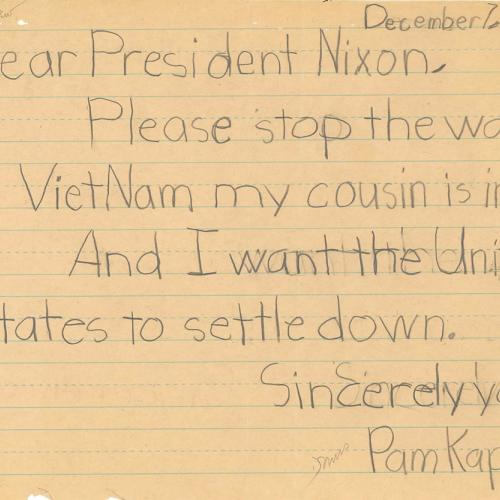 December 7,
ear President Nixon,
Please stop the wa
VietNam my cousin is in
And I want the Uni
tates to settle down.
Sincerely yo
Pam Kap